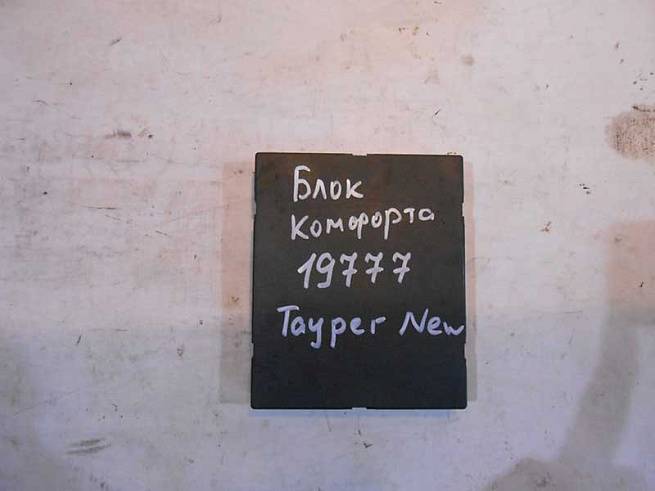 Блок
Комфорта
19777
Таурег New